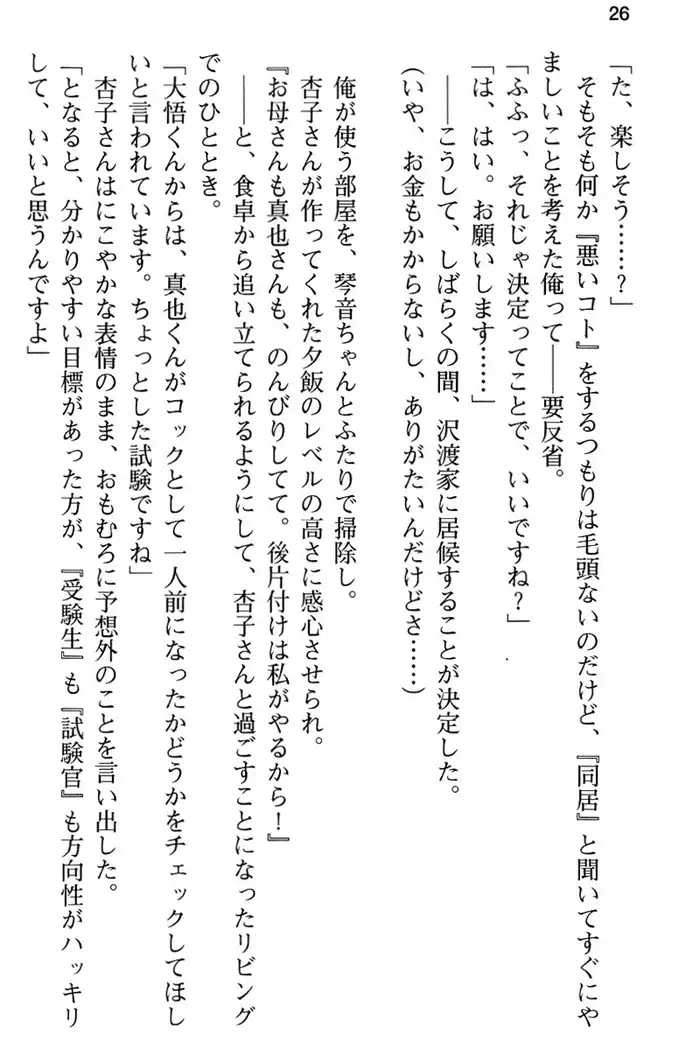 26
「た、楽しそう……？」
そもそも何か『悪いコト』をするつもりは毛頭ないのだけど、『同居』と聞いてすぐにや
ましいことを考えた俺って――要反省。
「ふふっ、それじゃ決定ってことで、いいですね？」
「は、はい。お願いします……」
――こうして、しばらくの間、沢渡家に居候することが決定した。
（いや、お金もかからないし、ありがたいんだけどさ……）
俺が使う部屋を、琴音ちゃんとふたりで掃除し。
杏子さんが作ってくれた夕飯のレベルの高さに感心させられ。
『お母さんも真也さんも、のんびりしてて。後片付けは私がやるから！』
――と、食卓から追い立てられるようにして、杏子さんと過ごすことになったリビング
でのひととき。
「大悟くんからは、真也くんがコックとして一人前になったかどうかをチェックしてほし
いと言われています。ちょっとした試験ですね」
杏子さんはにこやかな表情のまま、おもむろに予想外のことを言い出した。
「となると、分かりやすい目標があった方が、『受験生』も『試験官』も方向性がハッキリ
して、いいと思うんですよ」